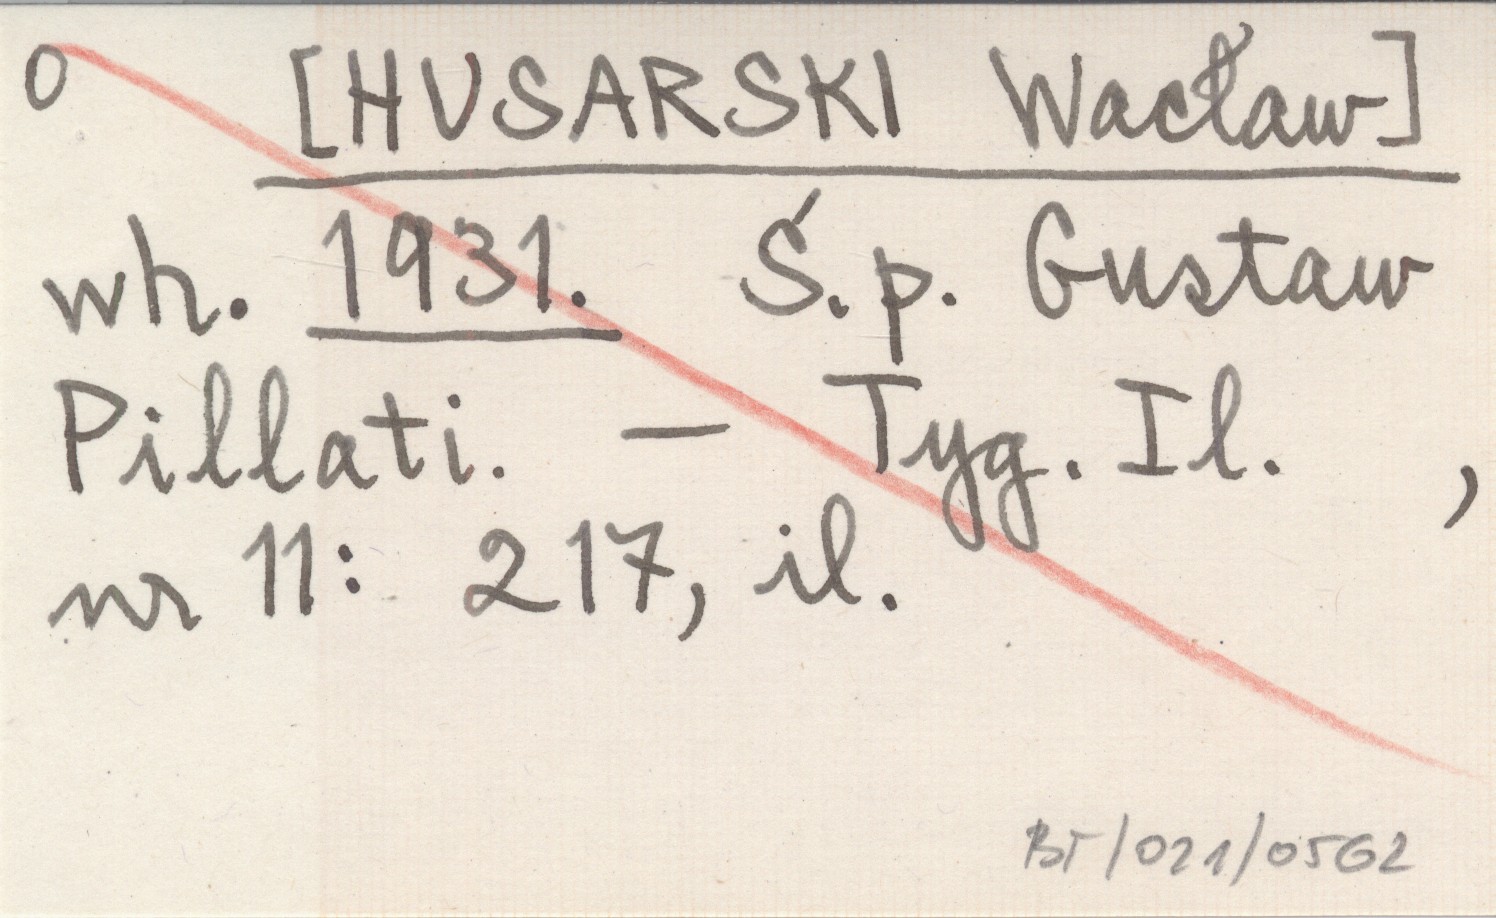 0 [HUSARSKI Wacław]
wh. 1931. Ś.p. Gustaw
Pillati. — Tyg. Il. ,
nr 11: 217, il.
BT/021/0562